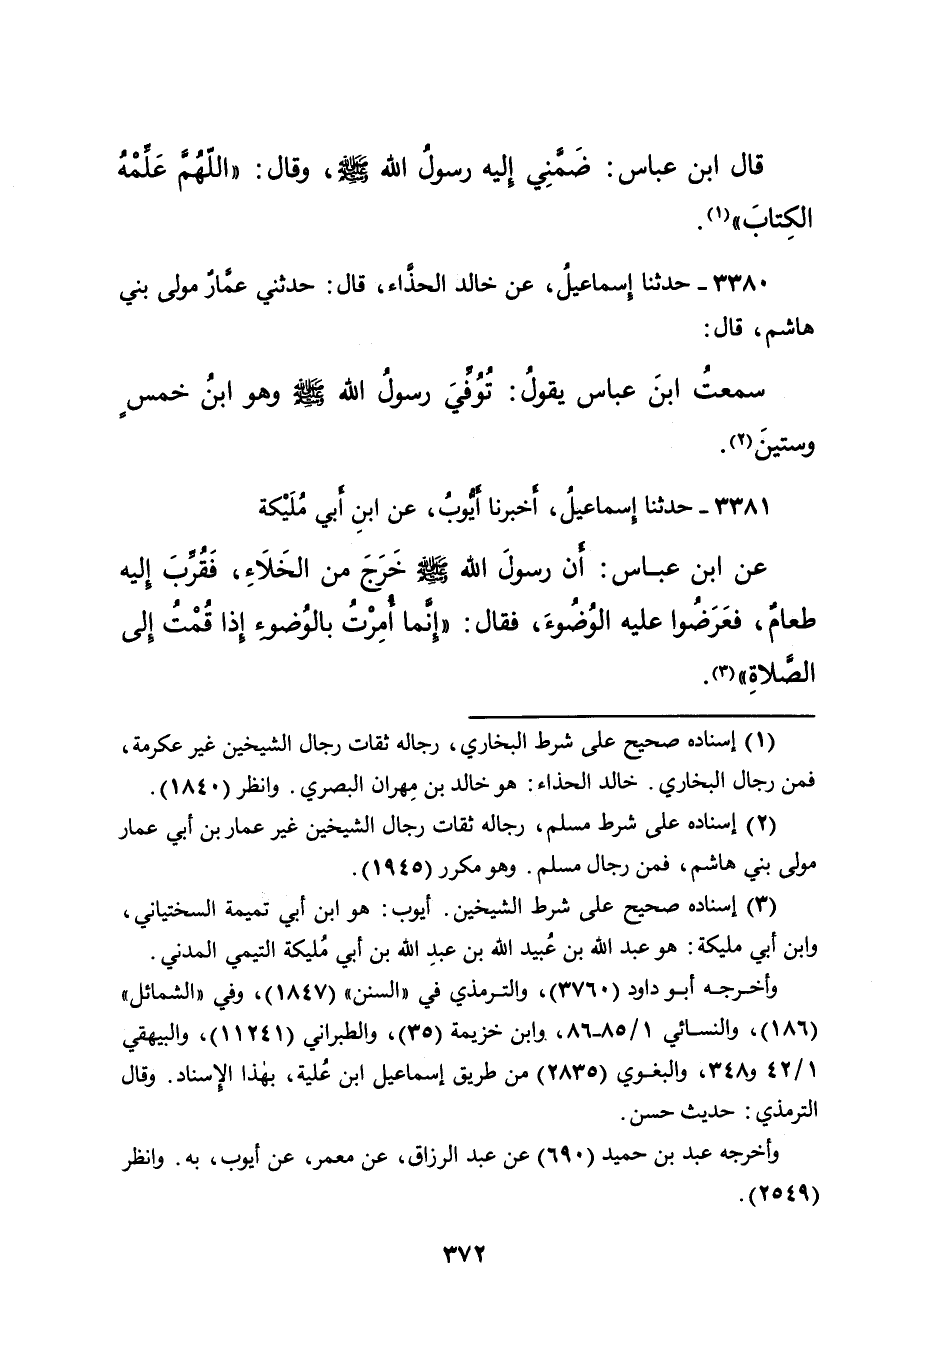 قال ابن عباس: ضَمَّنِي إليه رسولُ الله ﷺ، وقال: «اللّهُمَّ عَلِّمْهُ
الكِتابَ»(١).
٣٣٨٠ - حدثنا إسماعيلُ، عن خالد الحذَّاء، قال: حدثني عمَّارٌ مولى بني
هاشم، قال:
سمعتُ ابنَ عباس يقولُ: تُوُفِّيَ رسولُ الله ﷺ وهو ابنُ خمسٍ
وستينَ(٢).
٣٣٨١ - حدثنا إسماعيلُ، أخبرنا أَيُّوبُ، عن ابنِ أَبي مُلَيْكة
عن ابن عباس: أَن رسولَ الله ﷺ خَرَجَ من الخَلَاءِ، فَقُرِّبَ إليه
طعامٌ، فعَرَضُوا عليه الوُضُوءَ، فقال: «إِنَّما أُمِرْتُ بالوُضوءِ إذا قُمْتُ إلى
الصَّلاةِ»(٣).
(١) إسناده صحيح على شرط البخاري، رجاله ثقات رجال الشيخين غير عكرمة،
فمن رجال البخاري. خالد الحذاء: هو خالد بن مِهران البصري. وانظر (١٨٤٠).
(٢) إسناده على شرط مسلم، رجاله ثقات رجال الشيخين غير عمار بن أبي عمار
مولى بني هاشم، فمن رجال مسلم. وهو مكرر (١٩٤٥).
(٣) إسناده صحيح على شرط الشيخين. أيوب: هو ابن أبي تميمة السختياني،
وابن أبي مليكة: هو عبد الله بن عُبيد الله بن عبدِ الله بن أبي مُليكة التيمي المدني.
وأخرجه أبو داود (٣٧٦٠)، والترمذي في «السنن» (١٨٤٧)، وفي «الشمائل»
(١٨٦)، والنسائي ٨٥/١-٨٦، وابن خزيمة (٣٥)، والطبراني (١١٢٤١)، والبيهقي
٤٢/١ و٣٤٨، والبغوي (٢٨٣٥) من طريق إسماعيل ابن عُلية، بهٰذا الإسناد. وقال
الترمذي: حديث حسن.
وأخرجه عبد بن حميد (٦٩٠) عن عبد الرزاق، عن معمر، عن أيوب، به. وانظر
(٢٥٤٩).
٣٧٢